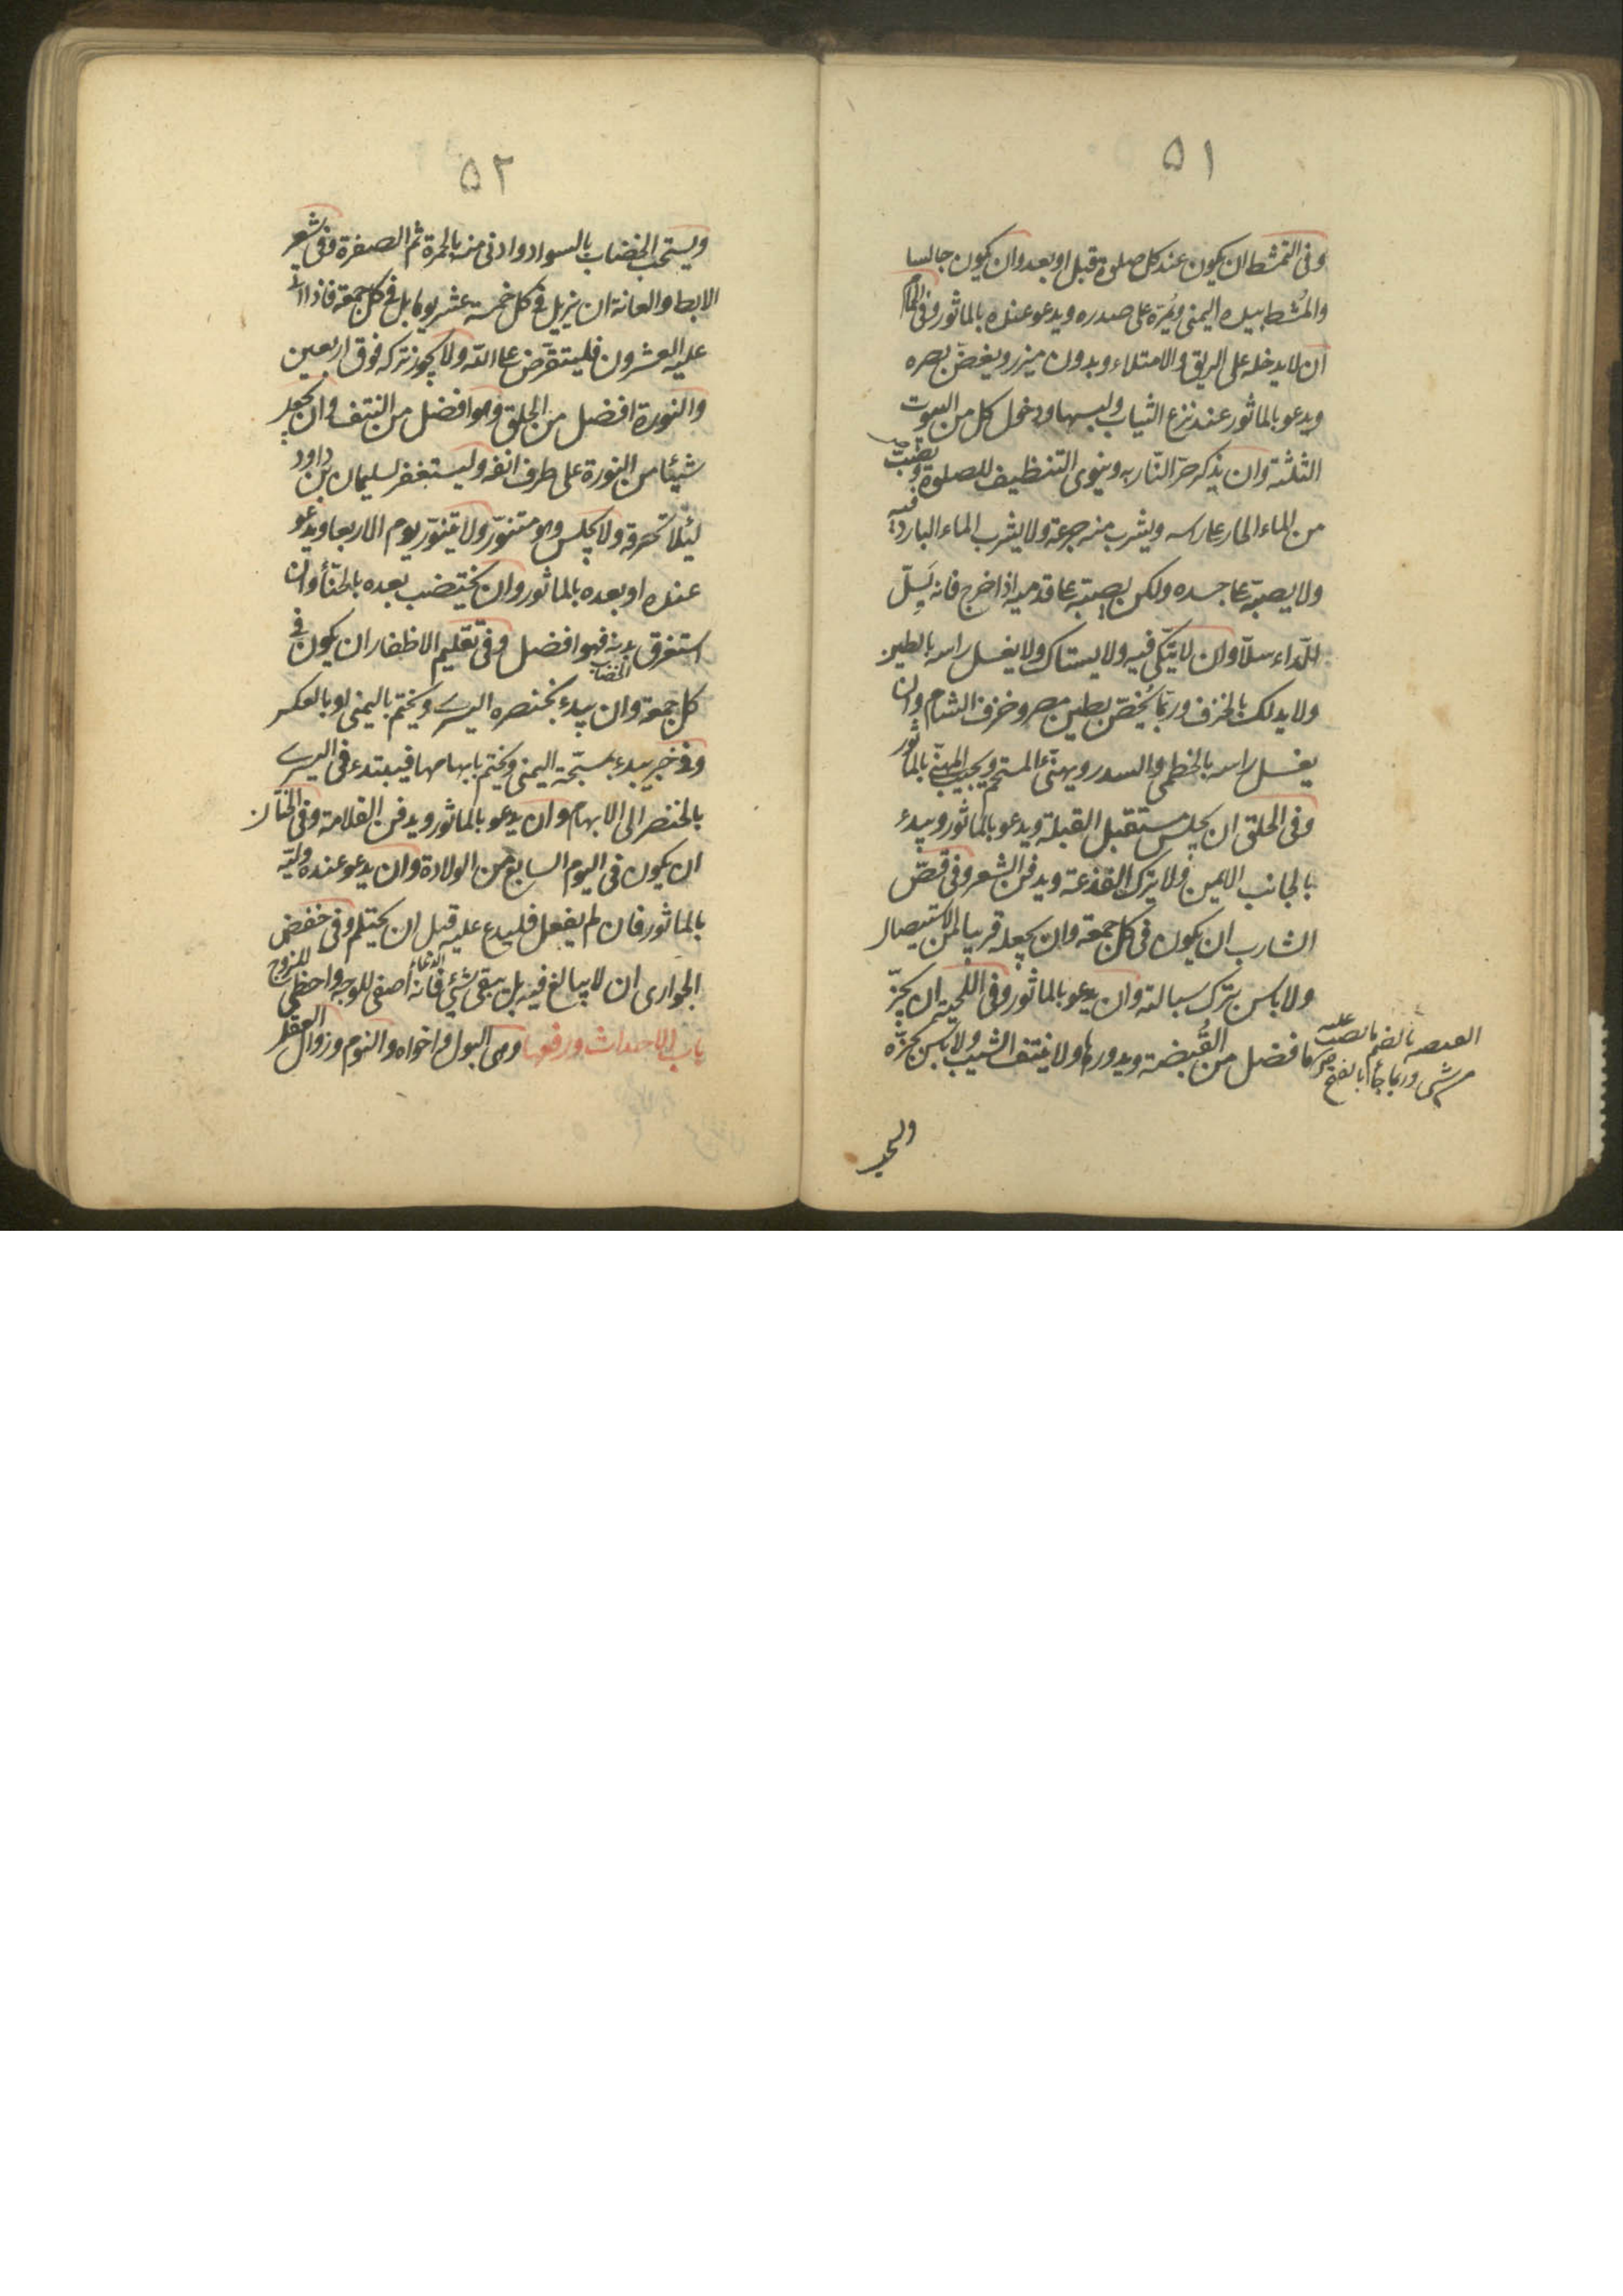 ٥١
وفى التمشط ان يكون عند كل صلوة قبل او بعد وان يكون جالسا
والمُشط بيده اليمنى ويُمرّه على صدره ويدعو عنده بالماثور وفى الحمام
ان لا يدخله على الريق والامتلاء وبدون ميزر ويغضّ بصره
ويدعو بالماثور عند نزع الثياب ولبسها ودخول كل من البيوت
الثلثة وان يذكر حرّ النّار به وينوى التنظيف للصلوة ويصبّ
من الماء الحار على راسه ويشرب منه جرعة ولا يشرب الماء البارد فيه
ولا يصبّه على جسده ولكن يصبّه على قدميه اذا خرج فانه يَسِلّ
الدّاء سلّا وان لا يتّكى فيه ولا يستاك ولا يغسل راسه بالطين
ولا يدلك بالخزف وربّما يُخصّ بطين مصر وخزف الشام وان
يغسل راسه بالخطمى والسدر ويهنّئ المستحم ويجيب المهنّئ بالماثور
وفى الحلق ان يجلس مستقبل القبلة ويدعو بالماثور ويبدء
بالجانب الايمن ولا يترك القذعة ويدفن الشعر وفى قصّ
الشارب ان يكون فى كل جمعة وان يجعله قريبا من الاستيصال
ولا باس بترك سبالته وان يدعو بالماثور وفى اللحية ان يجزّ
ما فضل من القُبضة ويدورها ولا ينتف الشيب ولا باس بجزّه
بالضم ما
عليه
وربما جاء بالفتح
ويستحب
٥٢
ويستحب الخضاب بالسواد وادنى منه بالحمرة ثم الصفرة وفى شعر
الابط والعانة ان يزيل فى كل خمسة عشر يوما بل فى كل جمعة فاذا اتى
عليه العشرون فليستقرض على اللّه ولا يجوز تركه فوق اربعين
والنورة افضل من الحلق وهو افضل من النتف وان يجعل
شيئا من النورة على طرف انفه وليستغفر لسليمان بن داود
ليئلّا تحرقه ولا يجلس وهو متنوّر ولا يتنوّر يوم الاربعا ويدعو
عنده او بعده بالماثور وان يختضب بعده بالحنّاء وان
استغرق بدنه فهو افضل وفى تقليم الاظفار ان يكون فى
الخضاب
كل جمعة وان يبدء بخنصره اليسرى ويختم باليمنى او بالعكس
وفى خبر يبدء بمسبّحة اليمنى ويختم بابهامها فيبتدء فى اليسرى
بالخنصر الى الابهام وان يدعو بالماثور ويدفن القلامة وفى الختان
ان يكون فى اليوم السابع من الولادة وان يدعو عنده وليّه
بالماثور فان لم يفعل فليدع عليه قبل ان يحتلم وفى خفض
الدعاء
الجوارى ان لا يبالغ فيه بل يبقى شئ فانه اصفى للوجه واحظى للزوج
باب الاحداث ورفعها وهى البول واخواه والنوم وزوال العقل